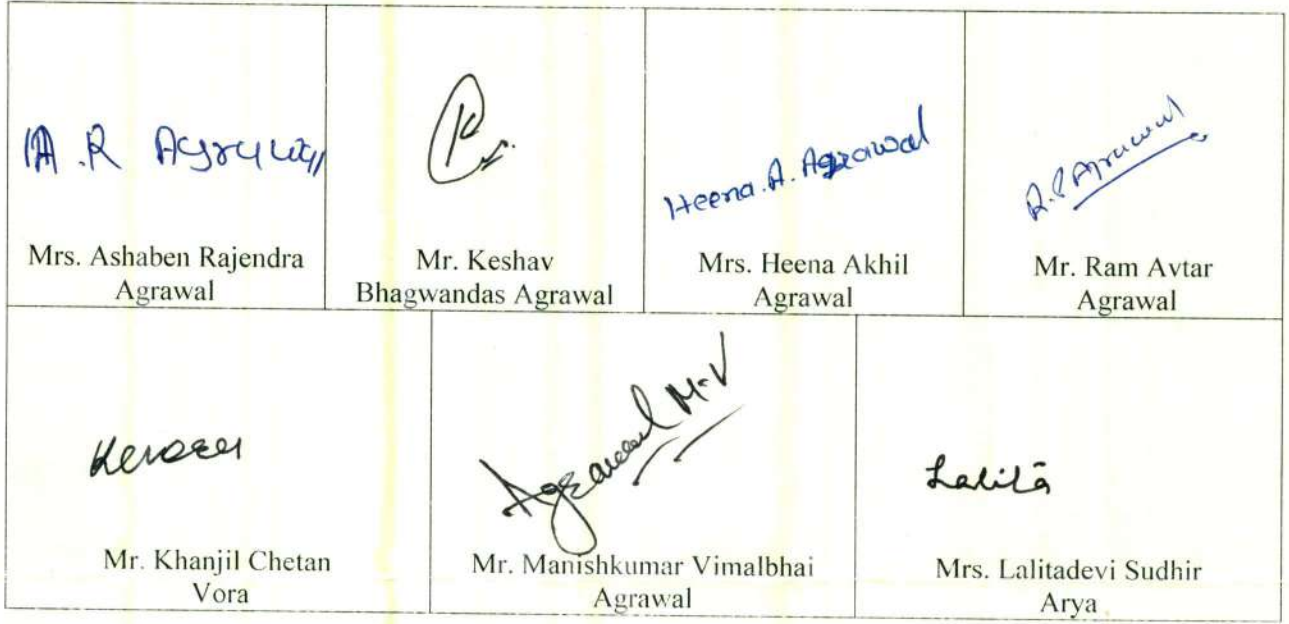 A.R Agrawal
Mrs. Ashaben Rajendra
Agrawal
Mr. Keshav
Bhagwandas Agrawal
Heena.A.Agrawal
Mrs. Heena Akhil
Agrawal
Agrawal
Mr. Ram Avtar
Agrawal
Mr. Khanjil Chetan
Vora
Agrawal M.V
Mr. Manishkumar Vimalbhai
Agrawal
Lalitā
Mrs. Lalitadevi Sudhir
Arya